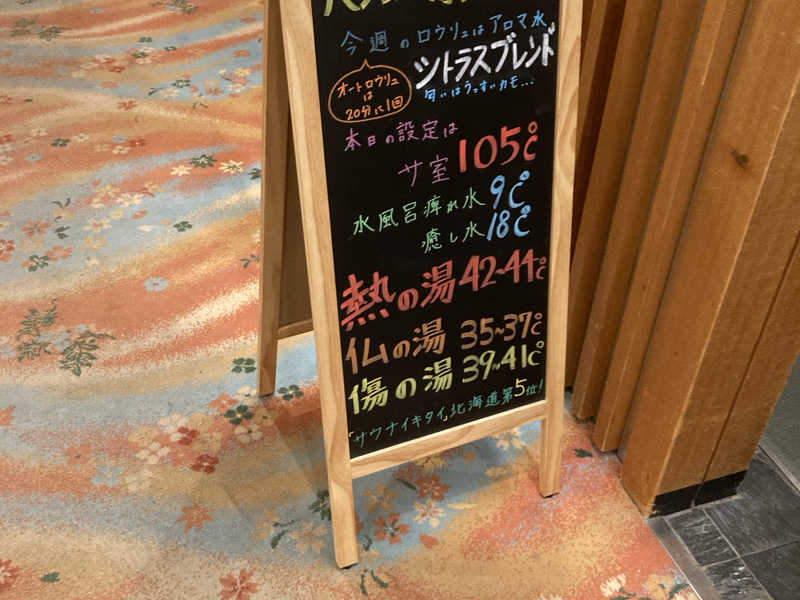 今週のロウリュはアロマ水
シトラスブレンド
オートロウリュ
は
20分に1回
匂いはうっすいカモ...
本日の設定は
サ室 105℃
水風呂痺れ水 9℃
癒し水 18℃
熱の湯 42~44℃
仏の湯 35~37℃
傷の湯 39~41℃
「サウナイキタイ」北海道第5位!